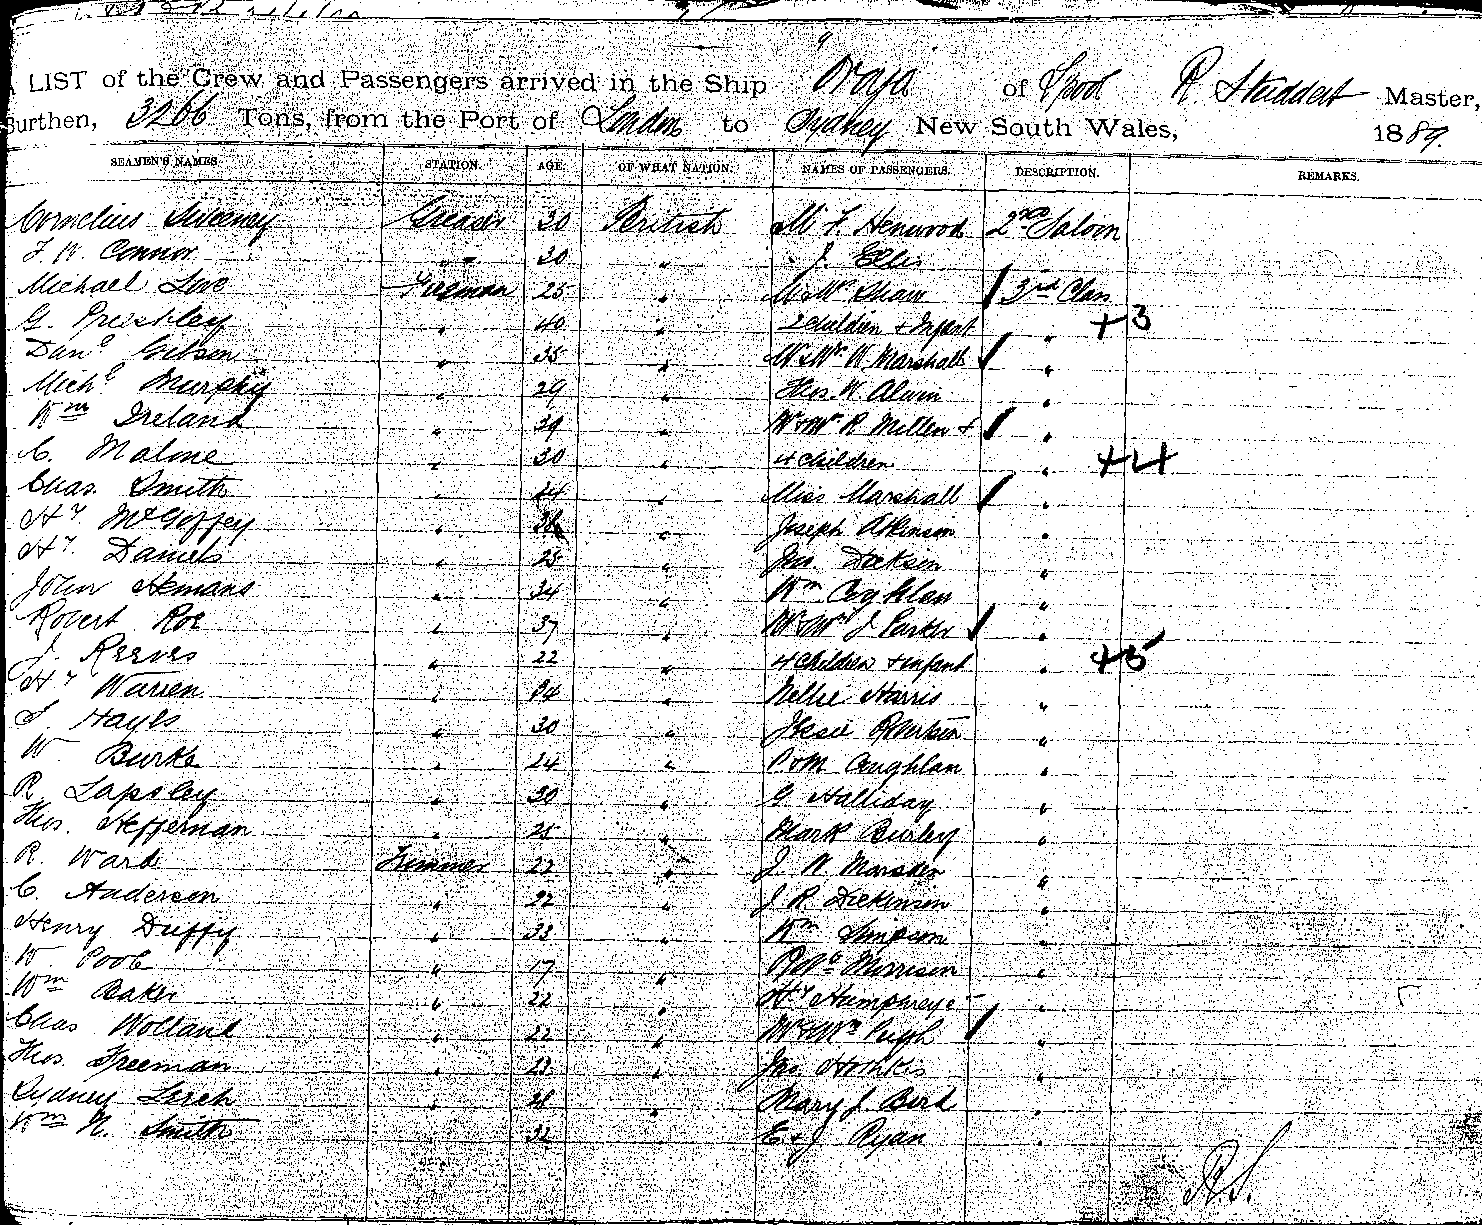 LIST of the Crew and Passengers arrived in the Ship " Oroya of L'pool R. Studdert Master,
Burthen, 3266 Tons, from the Port of London to Sydney New South Wales, 1889.
SEAMEN'S NAMES. STATION. AGE. OF WHAT NATION. NAMES OF PASSENGERS. DESCRIPTION. REMARKS.
Cornelius Sweeney Greaser 30 British Mr F. Henwood 2nd Saloon
F. W. Connor " 30 " " J. Ellis
Michael Love Fireman 25 " Shaw 3rd Class
G. Prestley " 40 " 2 Children + Infant " +3
Danl Gibson " 35 " W. Marshall "
Michl Murphy " 29 " Thos. W. Alwin "
Wm Ireland " 39 " R. Millen + "
C. Malone " 30 " 4 Children " +4
Chas. Smith " 44 " Miss Marshall "
Hy McGoffey " " Joseph Atkinson "
Hy Daniels " 25 " Jno. Dickson "
John Hemans " 34 " Wm Coghlan "
Robert Roe " 37 " J. Parker "
J. Reeves " 22 " 4 Children + infant " +5
Hy Warren " " Nellie Harris "
S. Hayes " 30 " Jessie Robertson "
W. Burke " 24 " P. & M. Coughlan "
R. Lapsley " 30 " G. Halliday "
Thos. Heffernan " 25 " Mark Burley "
R. Ward Trimmer 22 " J. W. Marsden "
C. Anderson " 22 " J. R. Dickinson "
Henry Duffy " 33 " Wm Simpson "
W. Poole " 17 " Morrison "
Wm Baker " 22 " Hy Humphreys "
Chas Wolland " 22 " Mr & Mrs Pugh "
Thos. Freeman " 23 " Jas. Hotkis "
Sydney Larch " 28 " Mary J. Bird "
Wm N. Smith " 32 " E. & J. Ryan "
R.S.